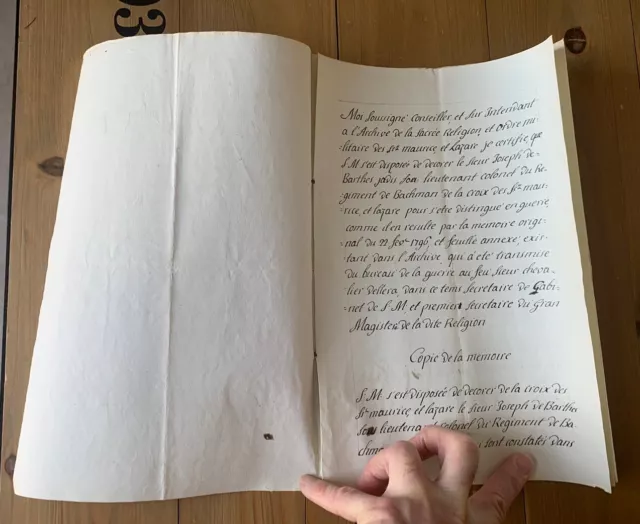 03
Moi Souvigné Conseiller, et Sur Intendant
a l'Archive de la Sacrée Religion, et Ordre mi-
litaire des Sts maurice, et Lazare je certifie, que
S. M. s'est disposée de decorer le sieur Joseph de-
Barthes lieutenant colonel du Re-
giment de Bachman de la croix des Sts mau-
rice, et lazare pour s'etre distingué en guerre,
comme il en resulte par la memoire origi-
nal du 22 fevr 1796, et feuille annexe; exis-
tant dans l'Archive qui a été transmise
du bureau de la guerre au feu sieur cheva-
lier dellera dans ce tems Secretaire de Gabi-
net de S. M. et premier Secretaire du Gran
Magistere de la dite Religion
Copie de la memoire
S. M. s'est disposée de decorer de la croix des
Sts maurice, et lazare le sieur Joseph de Barthes
sous lieutenant colonel du Regiment de Ba-
chm sont constatés dans